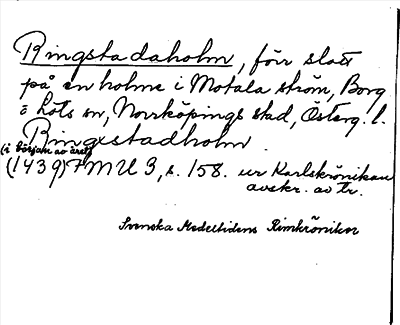 Ringstadaholm, förr slott
på en holme i Motala ström, Borg
o Löts sn, Norrköpings stad, Österg. l.
Ringxstadholm.
(i början av året)
(1439) FMU 3, s. 158. ur Karlskrönikan
avskr. av tr.
Svenska Medeltidens Rimkrönikor